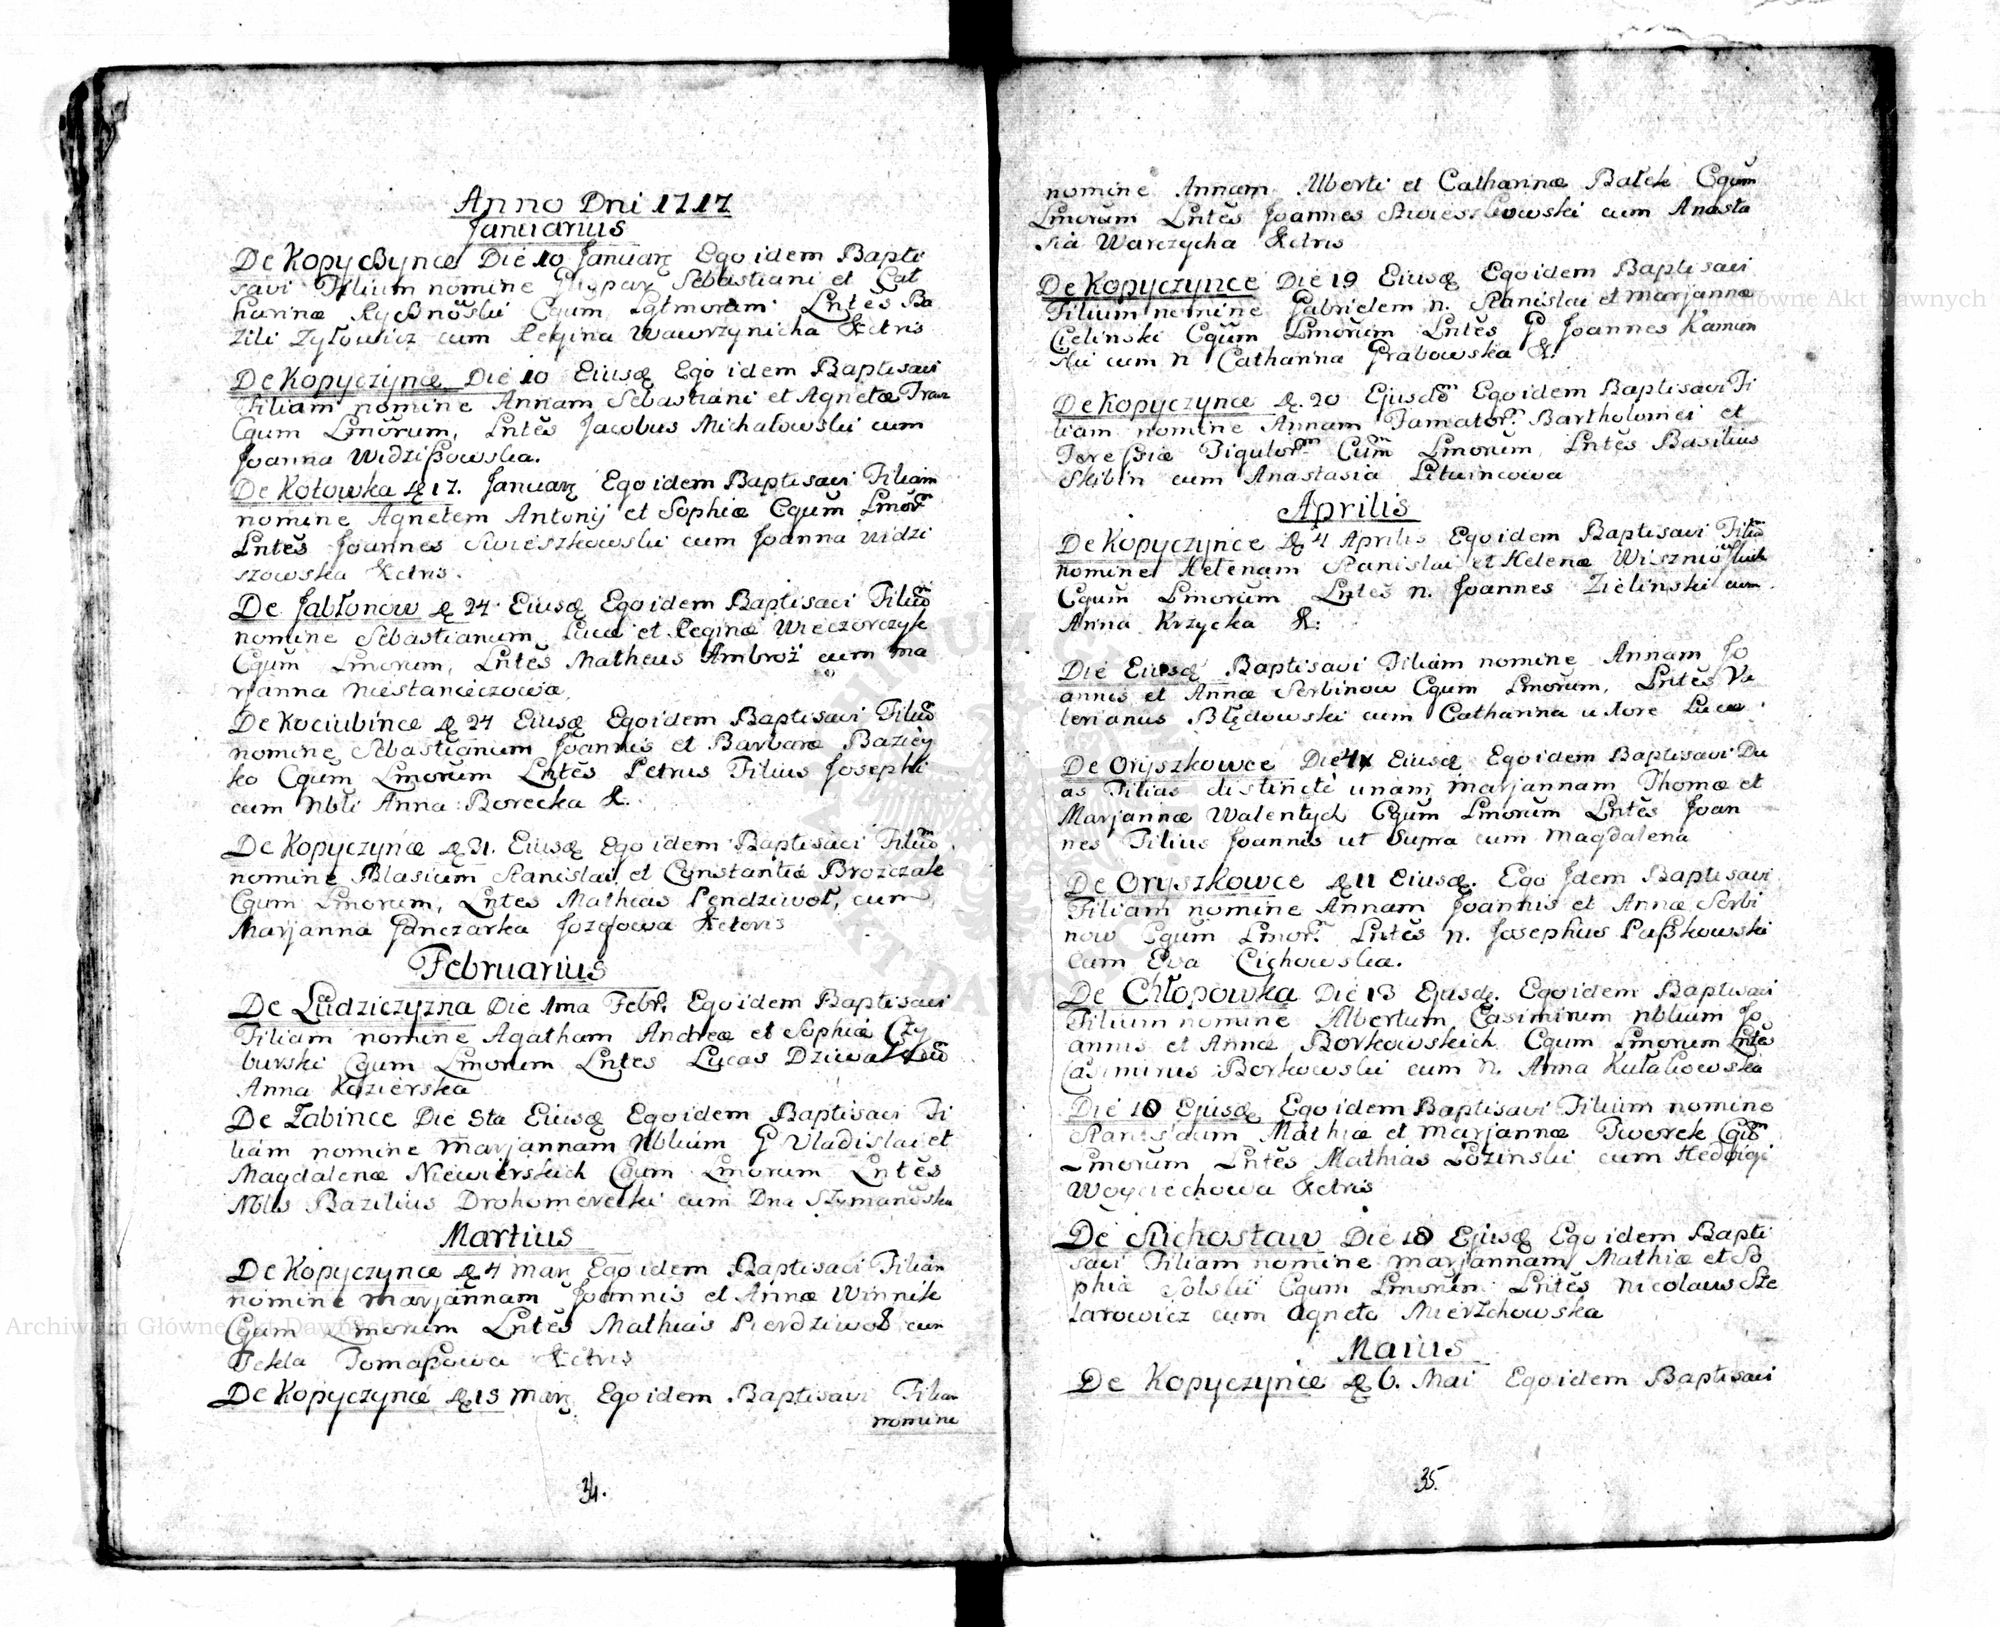 Anno Dni 1717
Januarius
De Kopyczynce Die 10 Januar Ego idem Bapti
savi Filium nomine Sebastiani et Cat
harinæ Cgum Lgtmorum Lntes Ba
zili Zyłowicz cum Regina Wawrzynicha &ctris
De Kopyczynce Die 10 Eiusdq Ego idem Baptisavi
Filiam nomine Annam Sebastiani et Agnetæ Fran
Cgum Lmorum, Lntes Jacobus Michałowski cum
Joanna Widzißowska.
De Kotowka D 17. Januar Ego idem Baptisavi Filiam
nomine Agnetem Antonij et Sophiæ Cgum Lmor
Lntes Joannes Swieszkowski cum Joanna Widzi
szowska &ctris.
De Jabłonow D 24 Eiusdq Ego idem Baptisavi Filium
nomine Sebastianum Lucæ et Reginæ Wieczorczyk
Cgum Lmorum, Lntes Matheus Ambroż cum Ma
rjanna Niestanciczowa
De Kociubince D 24 Eiusdq Ego idem Baptisavi Filium
nomine Sebastianum Joannis et Barbaræ Baziey
ko Cgum Lmorum Lntes Petrus Filius Josephi
cum Nbli Anna Borecka &.
De Kopyczynce D 31. Eiusdq Ego idem Baptisavi Filium
nomine Blasium Stanislai et Constantiæ Brożczak
Cgum Lmorum, Lntes Mathias Pendziwoł, cum
Marjanna Ganczarka Jozefowa &cteris
Februarius
De Ludziczyzna Die 1ma Febr. Ego idem Baptisavi
Filiam nomine Agatham Andreæ et Sophiæ Czy
burski Cgum Lmorum Lntes Lucas Dziwa cum
Anna Kozierska
De Żabince Die 5ta Eiusdq Ego idem Baptisavi Fi
liam nomine Marjannam Nblium G Vladislai et
Magdalenæ Niewierskich Cgum Lmorum Lntes
Nblis Bazilius Drohomerecki cum Dna Szymanowska
Martius
De Kopyczynce D 4 Mar Ego idem Baptisavi Filiam
nomine Marjannam Joannis et Annæ Winnik
Cgum Lmorum Lntes Mathias Pierdziwoł cum
Tekla Tomaßowa &ctris
De Kopyczynce D 15 Mar Ego idem Baptisavi Filiam
nomine
34.
nomine Annam Alberti et Catharinæ Bałek Cgum
Lmorum Lntes Joannes Swieszkowski cum Anasta
sia Warczycha &ctris
De Kopyczynce Die 19 Eiusdq Ego idem Baptisavi
Filium nomine Gabrielem n. Stanislai et Marjannæ
Cielinski Cgum Lmorum Lntes G Joannes Kamin
ski cum n Catharina Grabowska &.
De Kopyczynce D. 20 Ejusdem Ego idem Baptisavi Fi
liam nomine Annam Famator. Bartholomei et
Teressiæ Figulor. Cum Lmorum Lntes Basilius
Skibin cum Anastasia Lituincowa
Aprilis
De Kopyczynce D 4 Aprilis Ego idem Baptisavi Filiam
nomine Helenam Stanislai et Helenæ Wiszniowskich
Cgum Lmorum Lntes n. Joannes Zielinski cum
Anna Krzycka &:
Die Eiusdq Baptisavi Filiam nomine Annam Jo
annis et Annæ Serbinow Cgum Lmorum, Lntes Va
lerianus Błędowski cum Catharina uxore Lucæ
De Oryszkowce Die Eiusdq Ego idem Baptisavi Du
as Filias distincte unam Marjannam Thomæ et
Marjannæ Walentych Cgum Lmorum Lntes Joan
nes Filius Joannis ut Supra cum Magdalena
De Oryszkowce D 11 Eiusdq. Ego Jdem Baptisavi
Filiam nomine Annam Joannis et Annæ Serbi
now Cgum Lmor. Lntes n. Josephus Paßkowski
cum Eva Cichowska.
De Chłopowka Die 13 Ejusdq. Ego idem Baptisavi
Filium nomine Albertum Casimirum Nblium Jo
annis et Annæ Borkowskich Cgum Lmorum Lntes
Casimirus Borkowski cum N. Anna Kułakowska
Die 18 Ejusdq Ego idem Baptisavi Filium nomine
Stanisldum Mathiæ et Marjannæ Tworek Cgum
Lmorum Lntes Mathias Łozinski cum Hedvigi
Woyciechowa &ctris
De Suchostaw Die 18 Ejusdq Ego idem Bapti
savi Filiam nomine Marjannam Mathiæ et So
phiæ Solski Cgum Lmorum Lntes Nicolaus Ste
larowicz cum Agneta Mierzchowska
Maius
De Kopyczynce D 6. Mai Ego idem Baptisavi
35.
Archiwum Główne Akt Dawnych